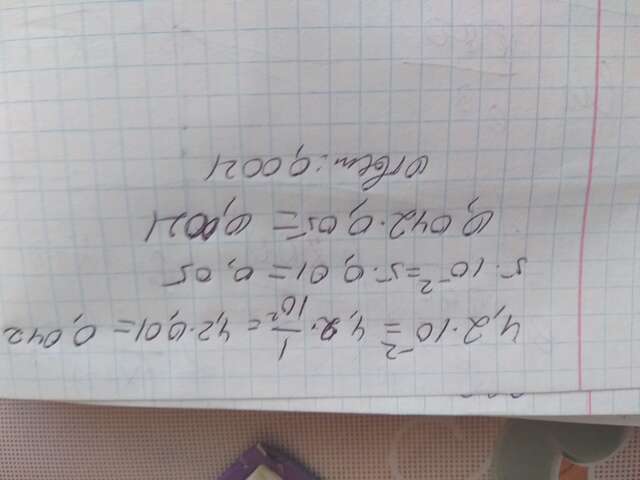 4,2·10⁻² = 4,2·1/10² = 4,2·0,01 = 0,042
5·10⁻² = 5·0,01 = 0,05
0,042·0,05 = 0,0021
Ответ: 0,0021